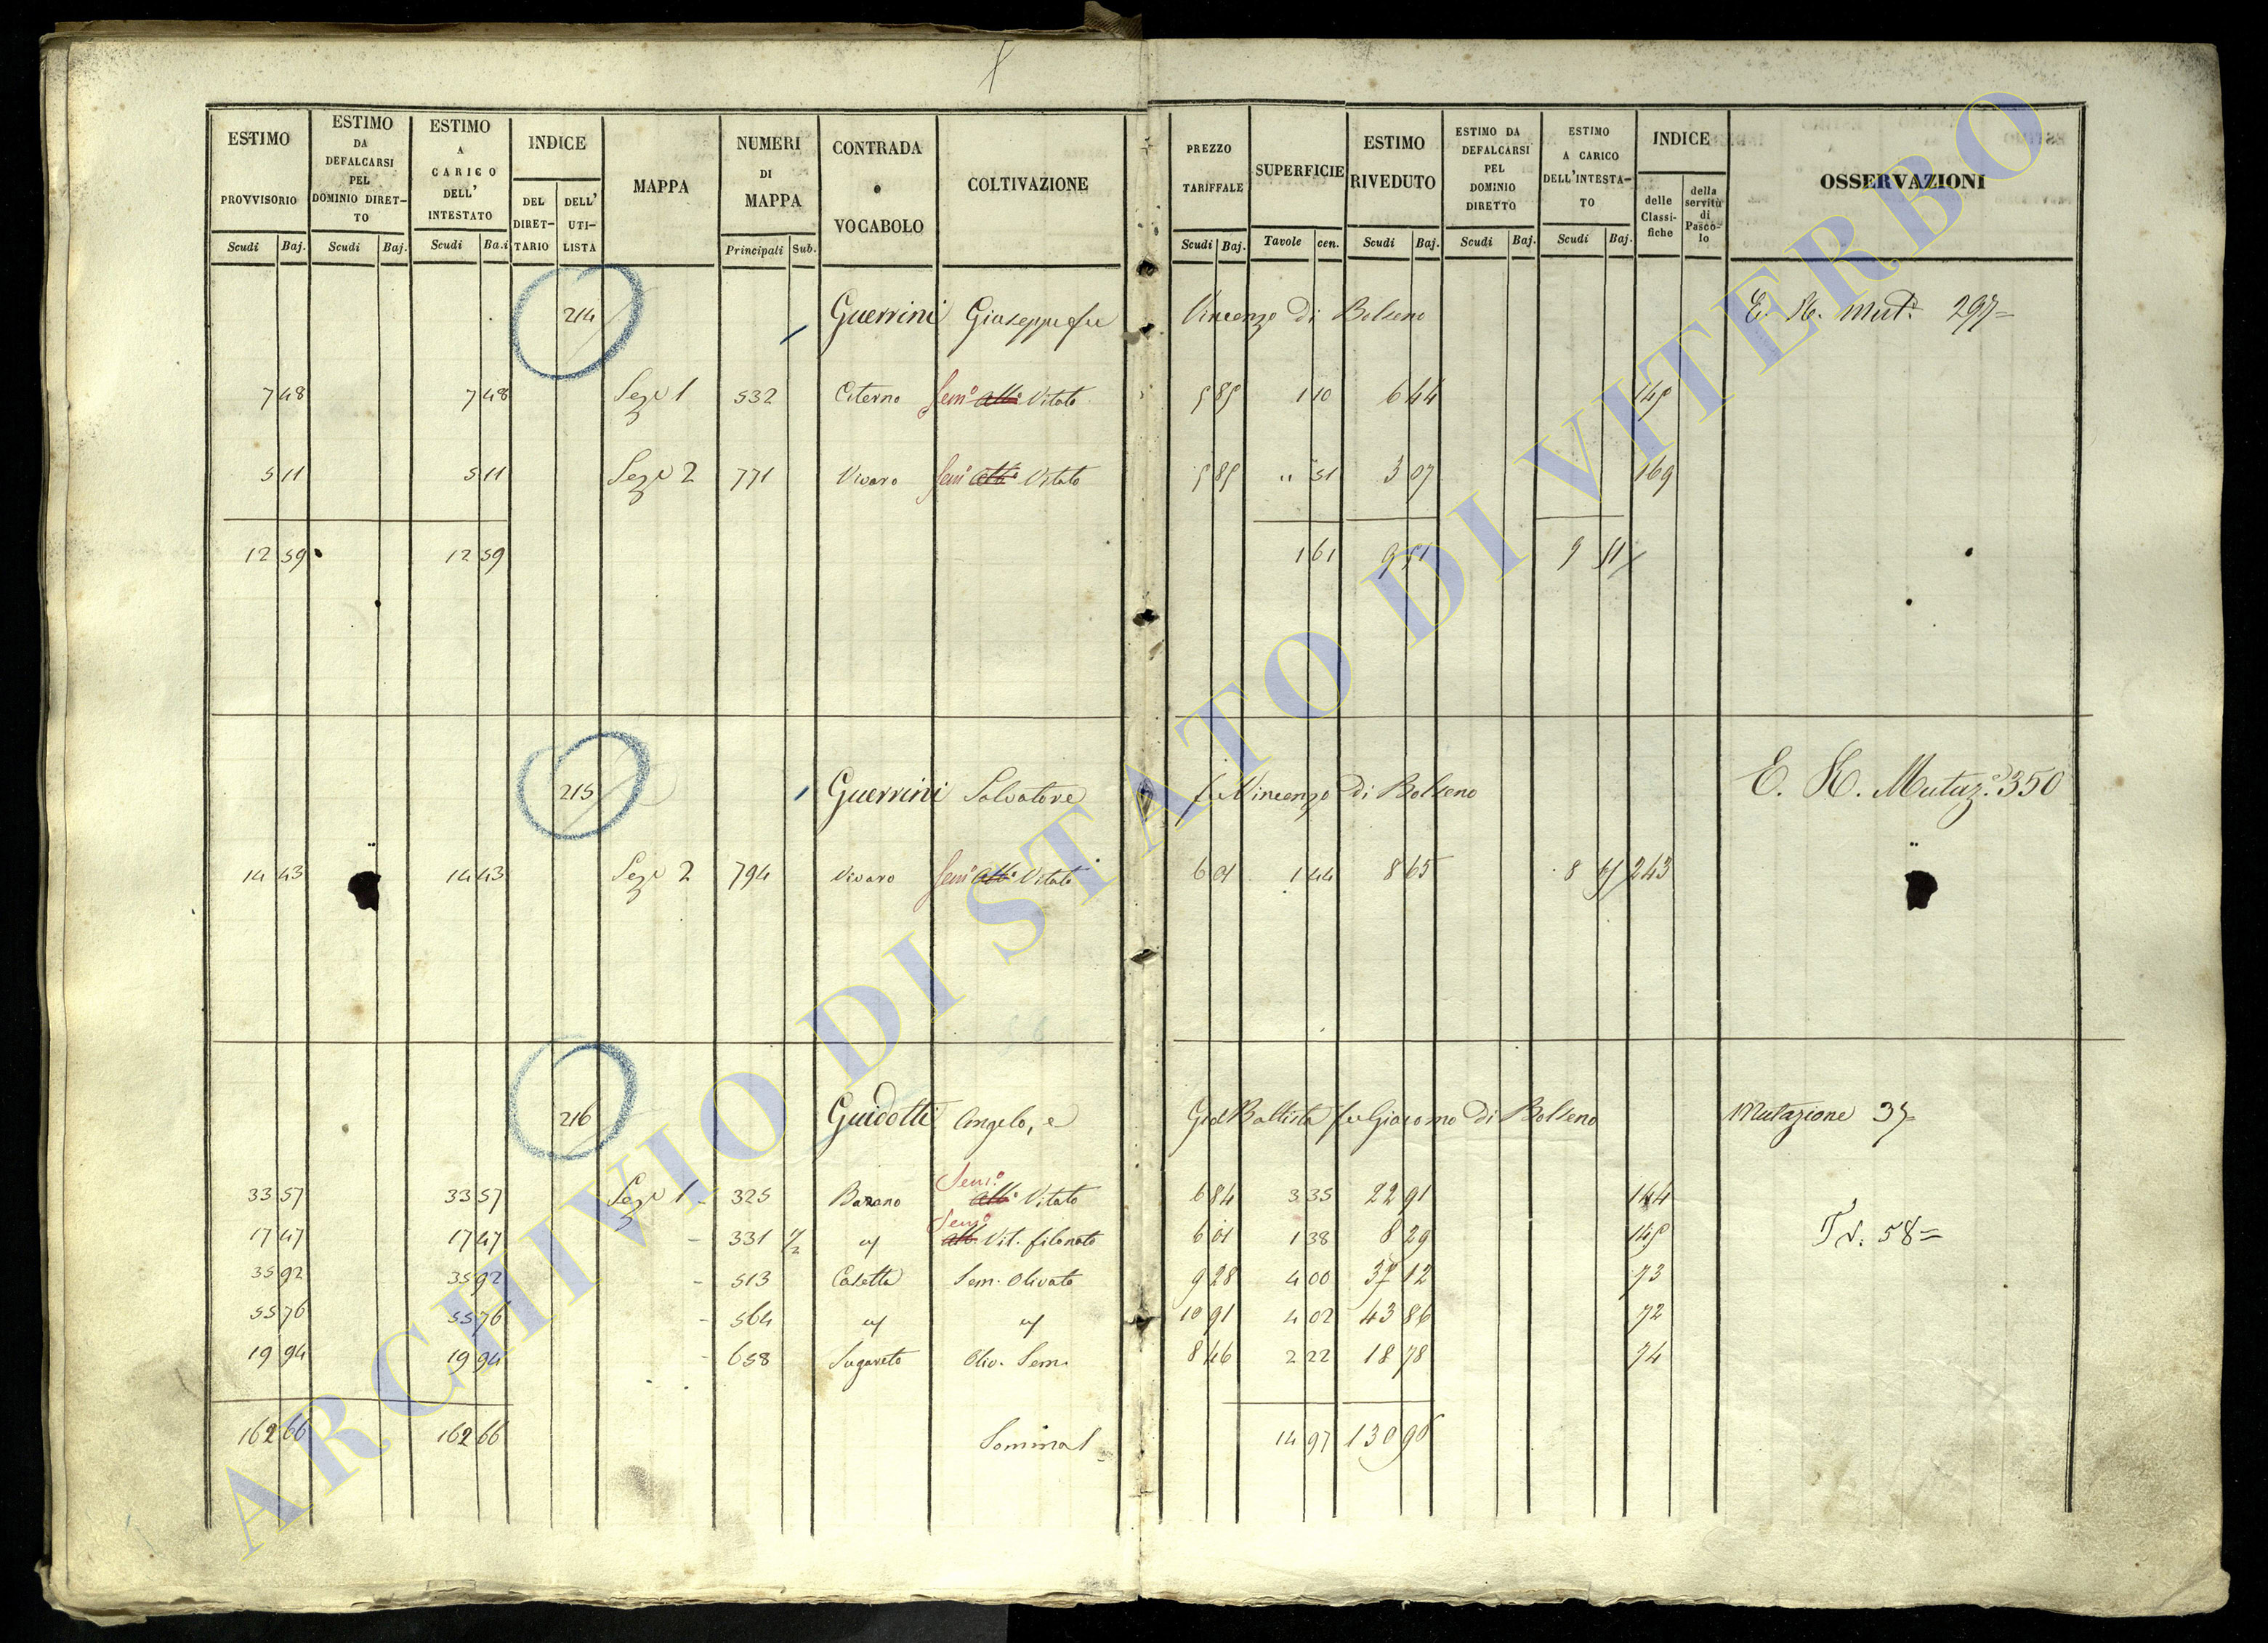 ESTIMO PROVVISORIO Scudi Baj.
ESTIMO DA DEFALCARSI PEL DOMINIO DIRET-TO Scudi Baj.
ESTIMO A CARICO DELL' INTESTATO Scudi Ba.i
INDICE DEL DIRET-TARIO DELL' UTI-LISTA
MAPPA
NUMERI DI MAPPA Principali Sub.
CONTRADA o VOCABOLO
COLTIVAZIONE
PREZZO TARIFFALE Scudi Baj.
SUPERFICIE Tavole cen.
ESTIMO RIVEDUTO Scudi Baj.
ESTIMO DA DEFALCARSI PEL DOMINIO DIRETTO Scudi Baj.
ESTIMO A CARICO DELL'INTESTA-TO Scudi Baj.
INDICE delle Classi-fiche della servitù di Pasco-lo
OSSERVAZIONI
214 Guerrini Giuseppe fu Vincenzo di Bolseno E. R. Mut. 297
7 48 7 48 Sez. 1 532 Citerno Sem. Alb. Vitato 5 85 1 10 6 44 145
5 11 5 11 Sez. 2 771 Vivaro Sem. Alb. Vitato 5 85 " 51 3 07 169
12 59 12 59 1 61 9 51 9 51
215 Guerrini Salvatore fu Vincenzo di Bolseno E. R. Mutaz. 350
14 43 14 43 Sez. 2 794 Vivaro Sem. Alb. Vitato 6 01 1 44 8 65 8 65 243
216 Guidotti Angelo, e Gio Battista fu Giacomo di Bolseno Mutazione 37
33 57 33 57 Sez. 1 325 Barano Sem. Alb. Vitato 6 84 3 35 22 91 144
17 47 17 47 331 1/2 Sem. Alb. Vit. filonato 6 01 1 38 8 29 145
35 92 35 92 513 Casetta Sem. Olivato 9 28 4 00 37 12 73
55 76 55 76 564 10 91 4 02 43 86 72
19 94 19 94 658 Sugareto Oliv. Sem. 8 46 2 22 18 78 74
Id. 58
162 66 162 66 Somma 14 97 130 96
ARCHIVIO DI STATO DI VITERBO